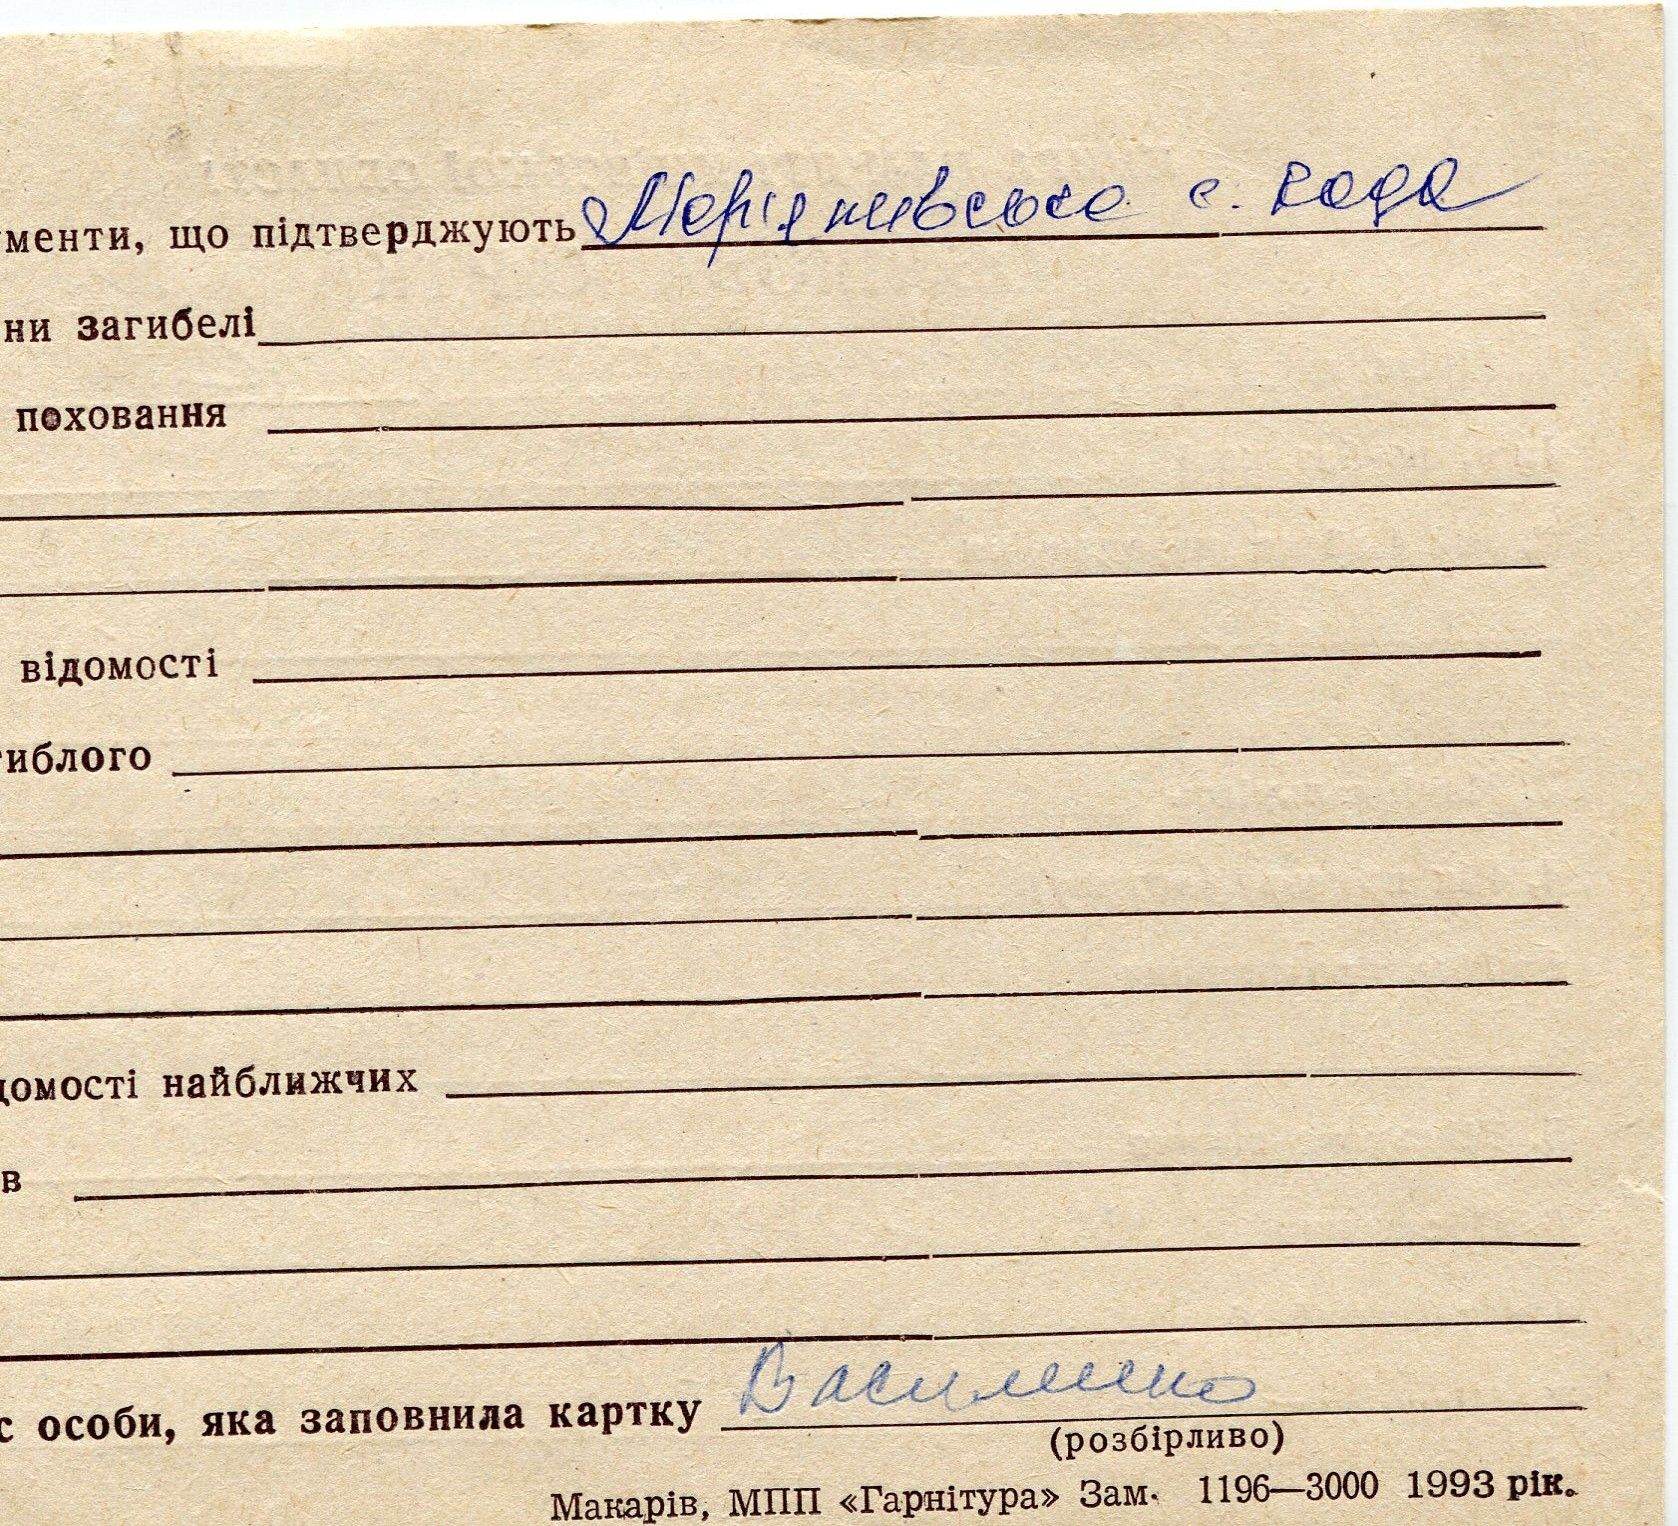 ументи, що підтверджують Мар'янивсько с. Рада
ни загибелі
поховання
відомості
иблого
домості найближчих
в
с особи, яка заповнила картку Василенко
(розбірливо)
Макарів, МПП «Гарнітура» Зам. 1196—3000 1993 рік.